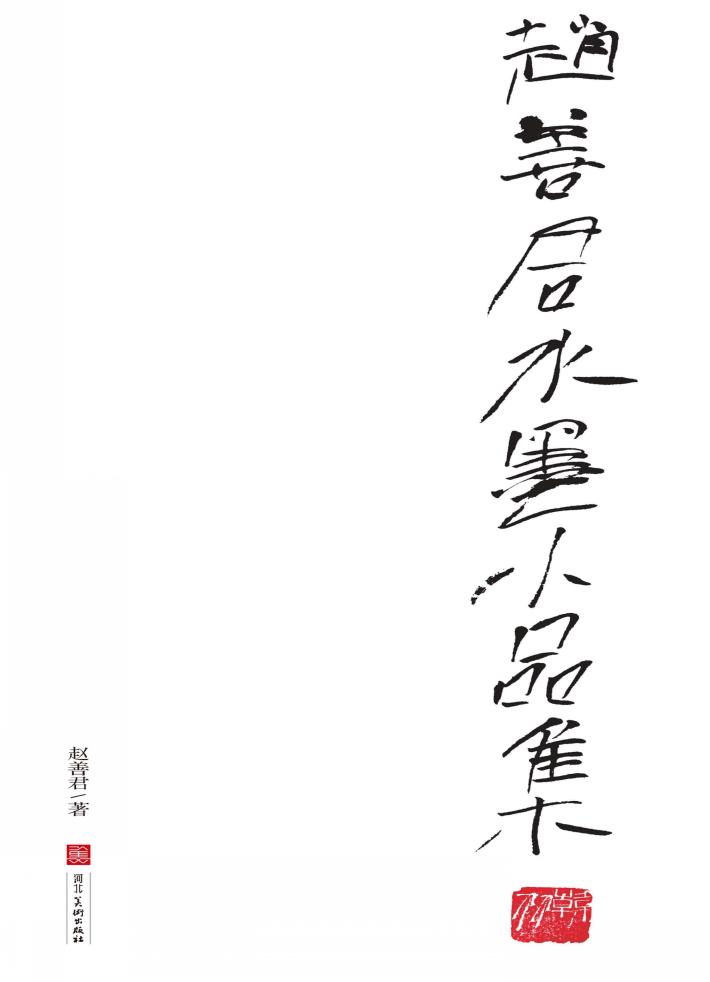 趙善君水墨小品集
赵善君/著
河北美術出版社